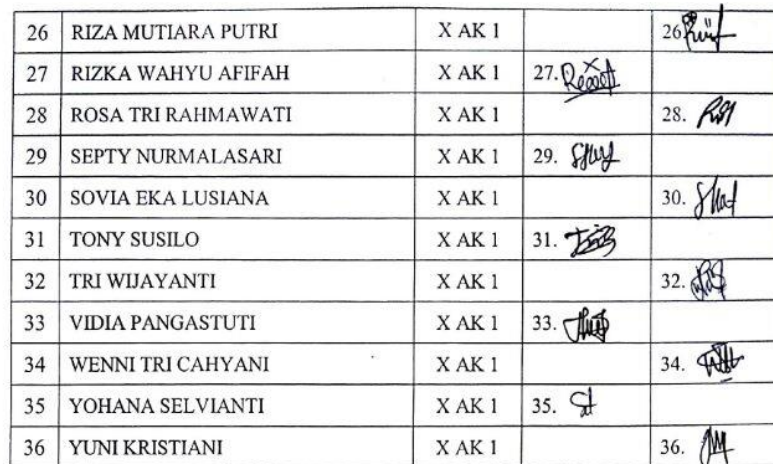 26 RIZA MUTIARA PUTRI X AK 1 26
27 RIZKA WAHYU AFIFAH X AK 1 27.
28 ROSA TRI RAHMAWATI X AK 1 28.
29 SEPTY NURMALASARI X AK 1 29.
30 SOVIA EKA LUSIANA X AK 1 30.
31 TONY SUSILO X AK 1 31.
32 TRI WIJAYANTI X AK 1 32.
33 VIDIA PANGASTUTI X AK 1 33.
34 WENNI TRI CAHYANI X AK 1 34.
35 YOHANA SELVIANTI X AK 1 35.
36 YUNI KRISTIANI X AK 1 36.